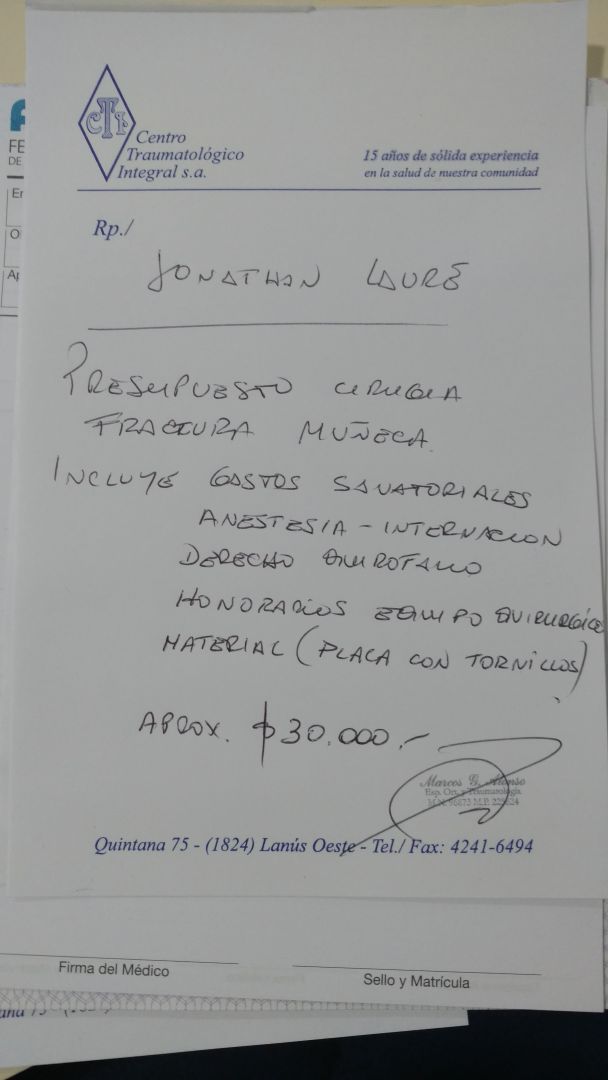 CTI
Centro
Traumatológico
Integral s.a.
15 años de sólida experiencia
en la salud de nuestra comunidad
Rp./
JONATHAN LAURE
PRESUPUESTO CIRUGIA
FRACTURA MUÑECA.
INCLUYE GASTOS SANATORIALES
ANESTESIA - INTERNACION
DERECHO QUIROFANO
HONORARIOS EQUIPO QUIRURGICO
MATERIAL (PLACA CON TORNILLOS)
APROX. $ 30.000.-
Marcos G. Alonso
Esp. Ort. y Traumatología
Quintana 75 - (1824) Lanús Oeste - Tel./ Fax: 4241-6494
Firma del Médico
Sello y Matrícula
FE
DE
O